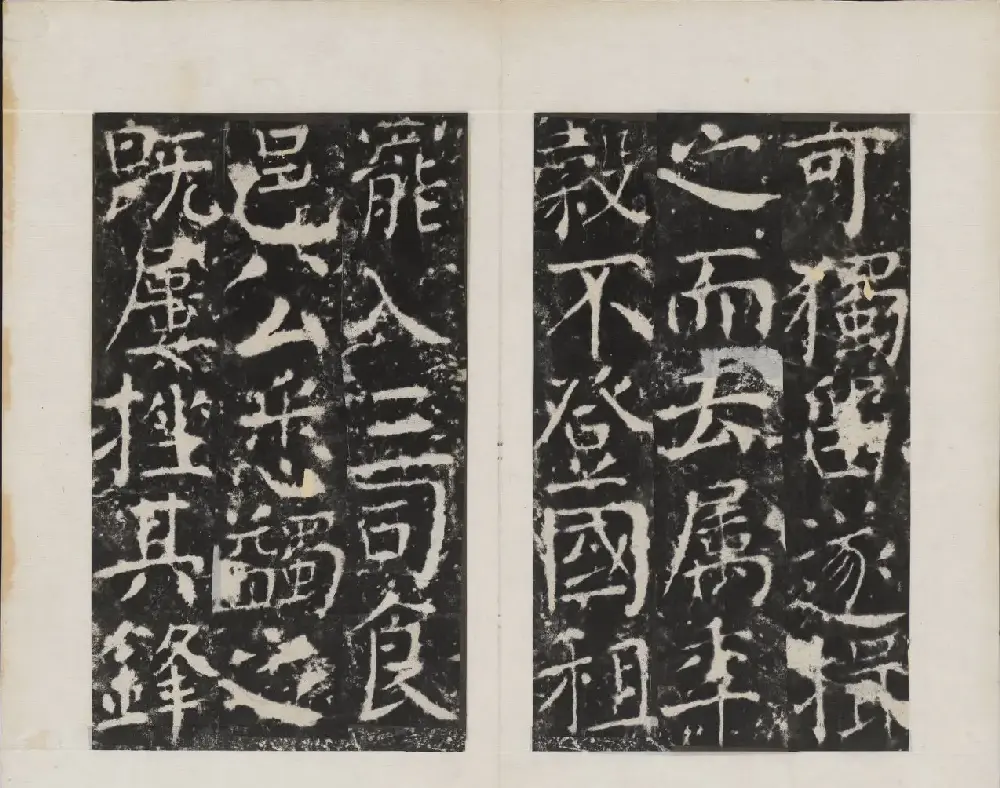 可獨留遂
之而去属年
穀不登國租
寵入三司食
邑公悉蠲之
既屢挫其鋒